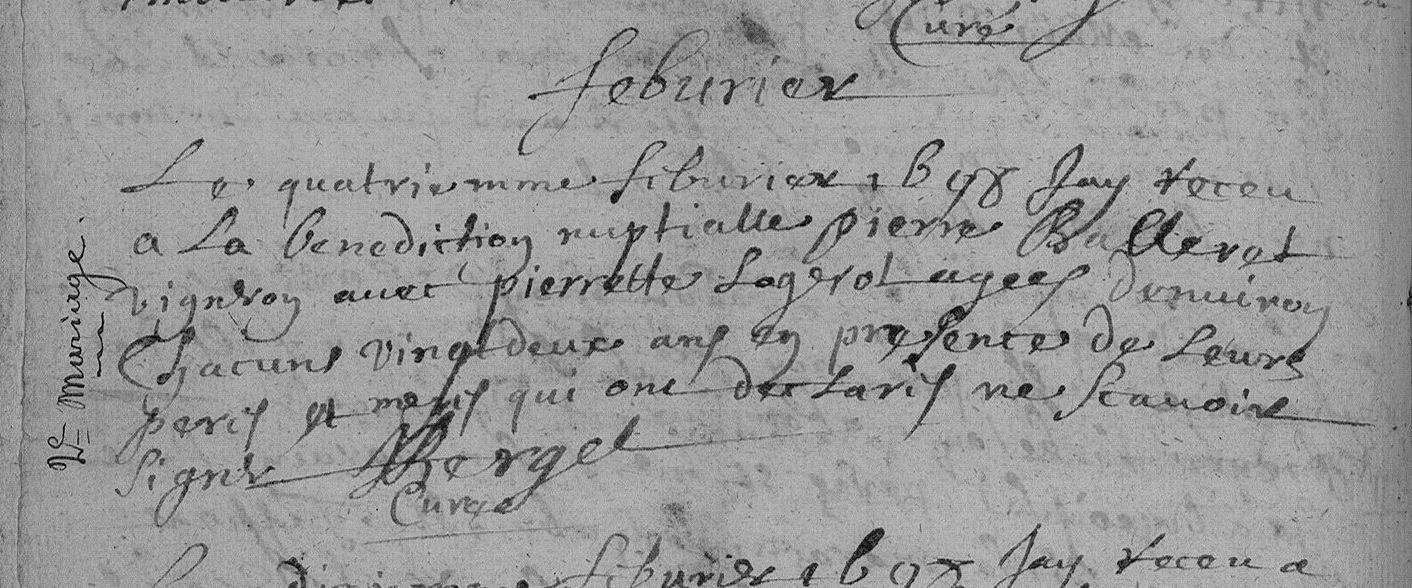 Curé
feburier
Le quatriemme feburier 1698 Jay receu
a La benediction nuptialle pierre Ballerot
vigneron avec pierrette Logerot agees denuiron
Chacuns vingt deux ans en presence de Leurs
peres et meres qui ont declares ne Scauoir
signer Berget
Curée
2e Mariage.
Le dixiemme feburier 1698 Jay receu a